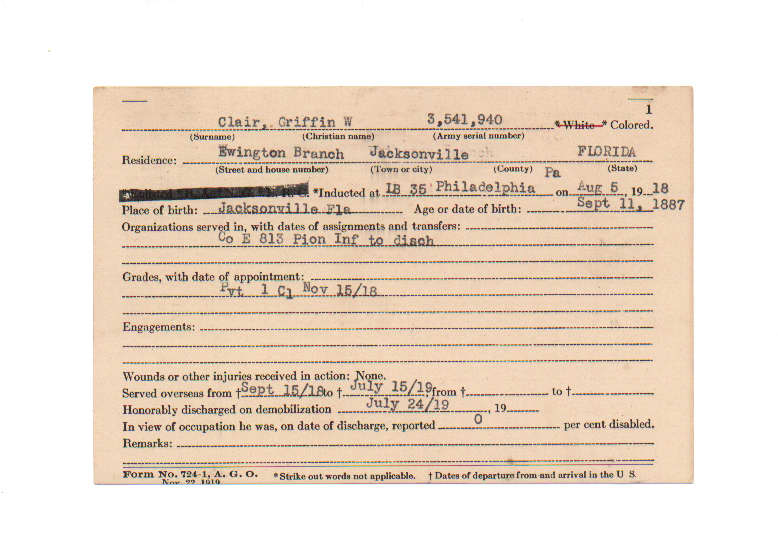 1
Clair, Griffin W 3,541,940 * White * Colored.
(Surname) (Christian name) (Army serial number)
Residence: Ewington Branch Jacksonville FLORIDA
(Street and house number) (Town or city) (County) Pa (State)
*Inducted at LB 35 Philadelphia on Aug 5, 1918
Place of birth: Jacksonville Fla Age or date of birth: Sept 11, 1887
Organizations served in, with dates of assignments and transfers:
Co E 813 Pion Inf to disch
Grades, with date of appointment:
Pvt 1 Cl Nov 15/18
Engagements:
Wounds or other injuries received in action: None.
Served overseas from † Sept 15/18 to † July 15/19, from † to †
Honorably discharged on demobilization July 24/19, 19
In view of occupation he was, on date of discharge, reported 0 per cent disabled.
Remarks:
Form No. 724-1, A. G. O. *Strike out words not applicable. † Dates of departure from and arrival in the U S.
Nov. 22, 1919.